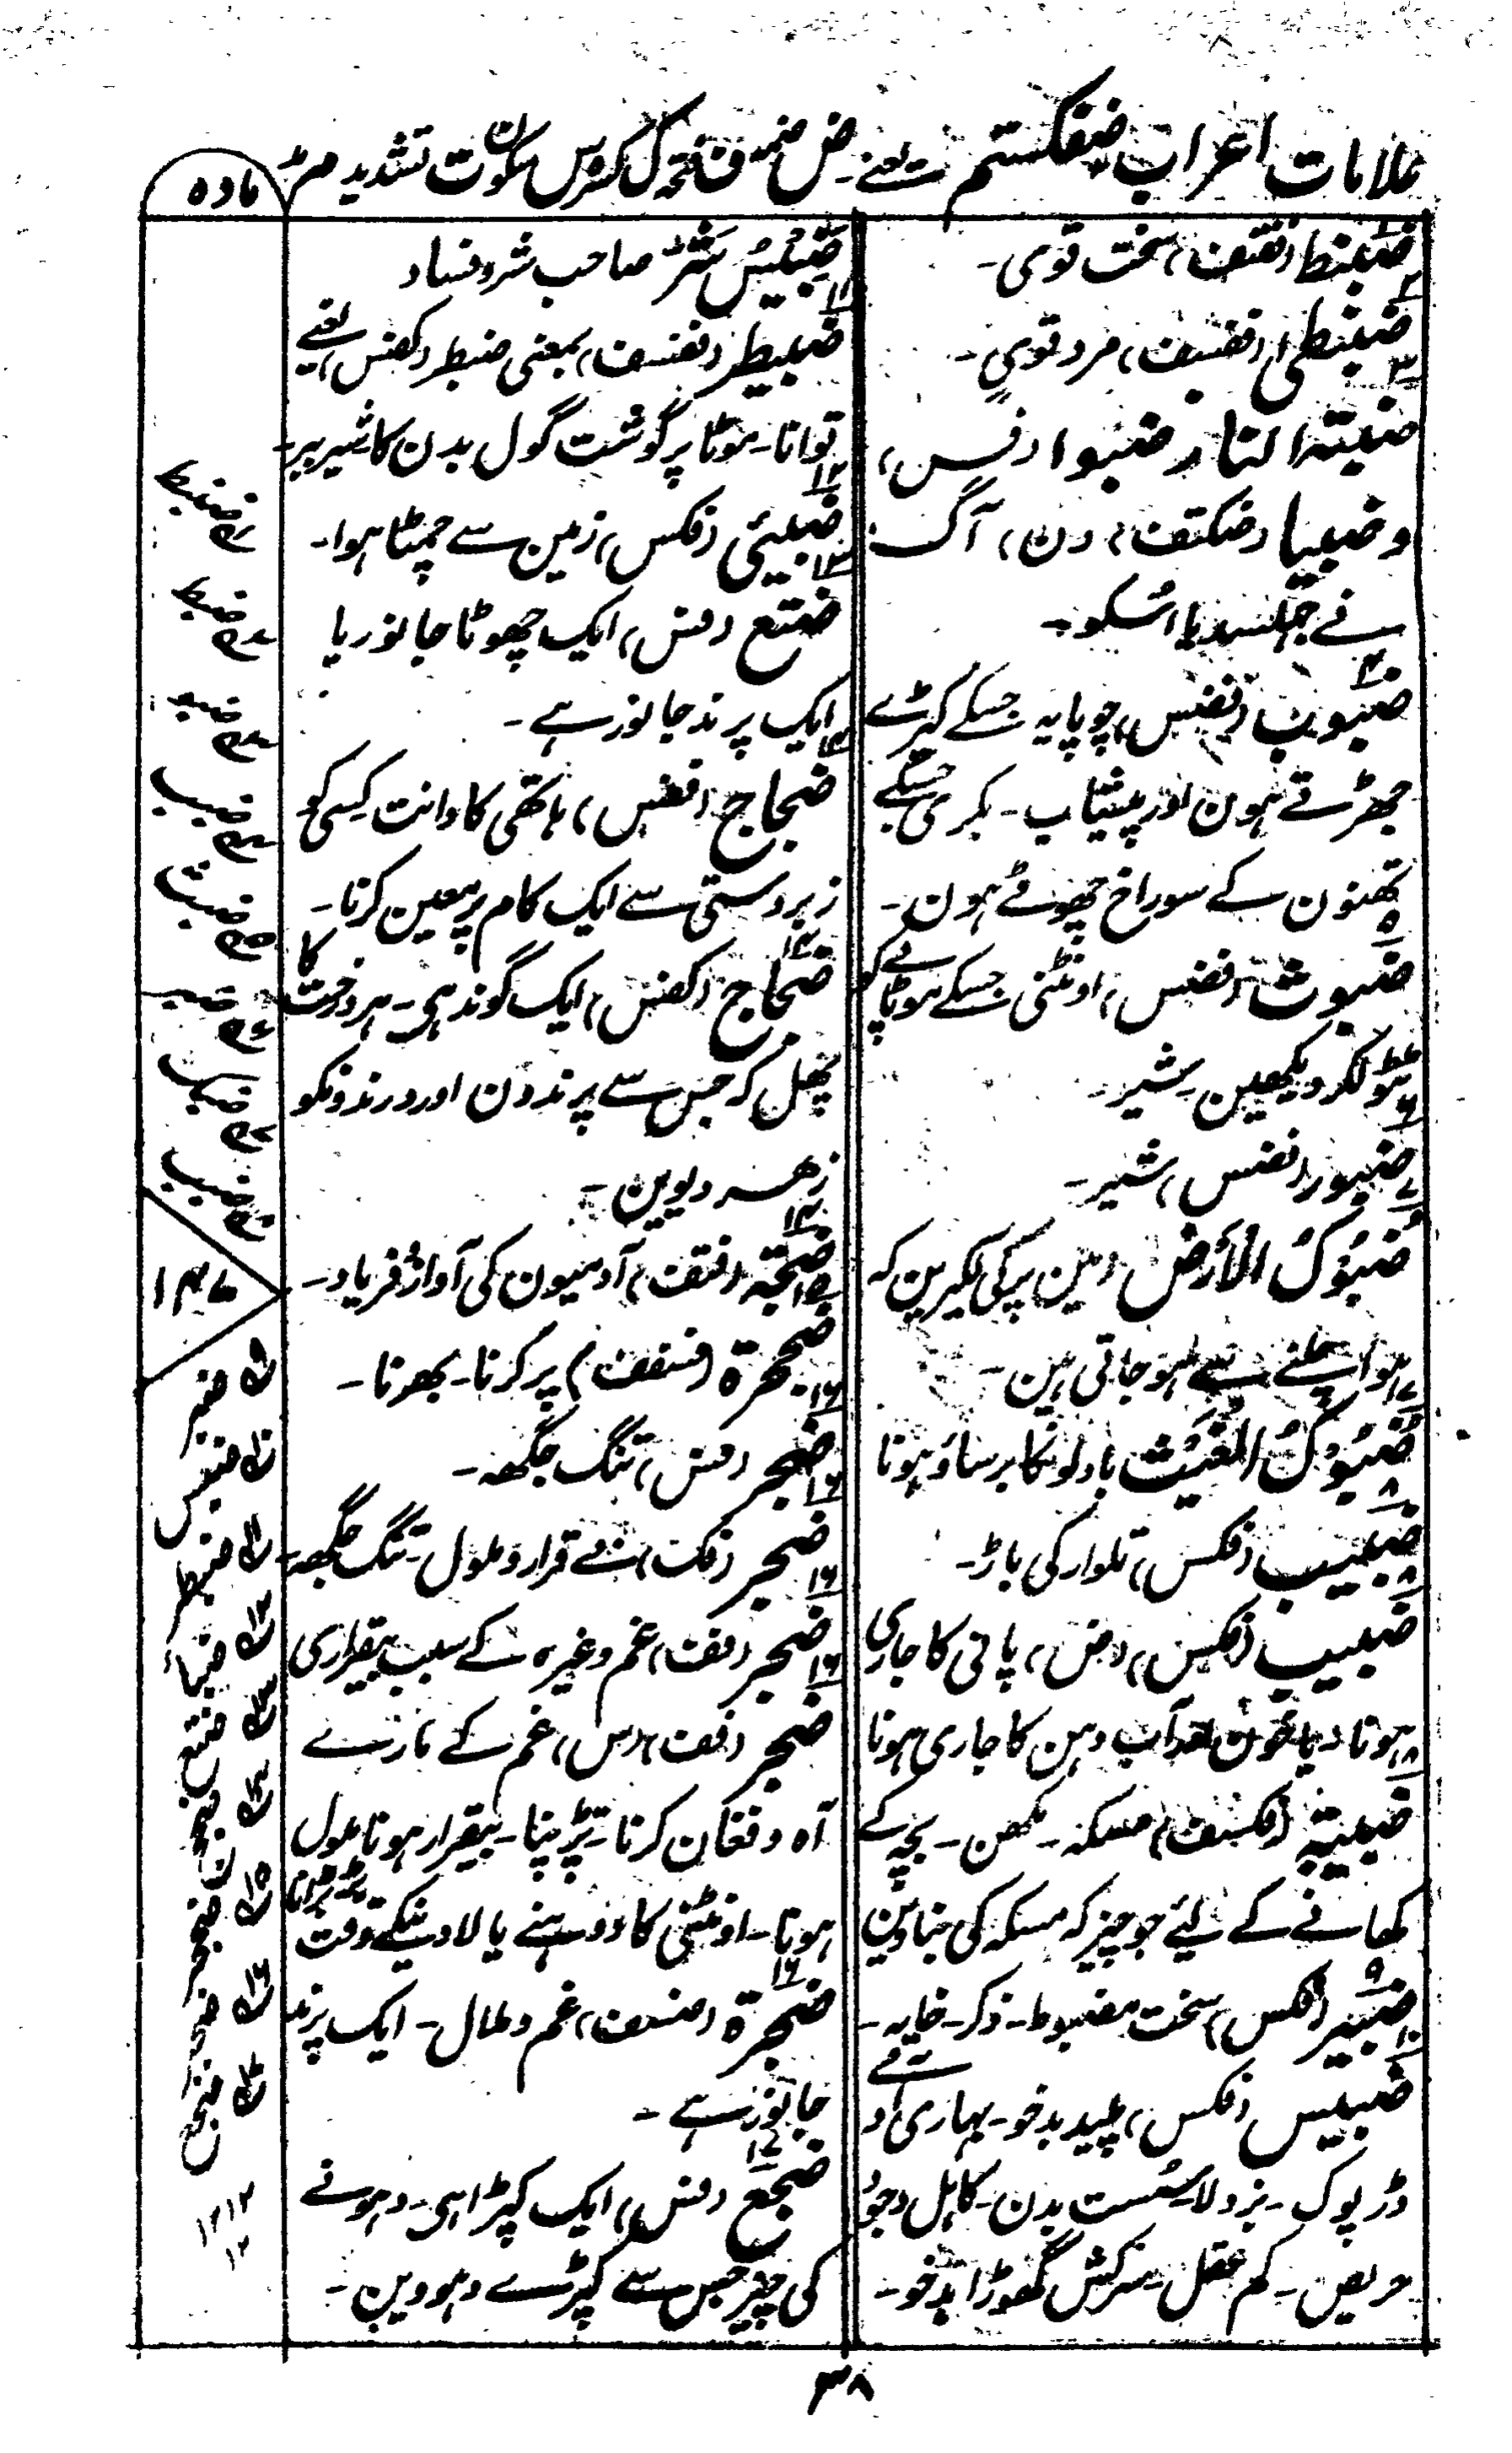 علامات اعراب ضفکستم یعنے ض ضمہ ف فتحہ ک کسرہ س سکون ت تشدید م مد
مادہ
ضبنط (فتف) سخت قوی۔
ضبنطی (فتسف) مرد قوی۔
ضبتہ النار ضبوا (فس)
و ضبیا (ضکتف) (ن) آگ
نے جھلسدیا اسکو۔
ضبوب (فضس) چوپایہ جسکے کپڑے
جھڑتے ہون اور پیشاب۔ بکری جسکے
تھنون کے سوراخ چھوٹے ہون۔
ضبوث (فضس) اونٹنی جسکے موٹاپے کو
ٹٹولکر دیکھین۔ شیر۔
ضبور (فضس) شیر۔
ضبوک الارض زمین پر کی لکیرین کہ
ہوا چلنے سے ہو جاتی ہین۔
ضبوک الغیث بادلونکا برساؤ ہونا
ضبیب (فکس) تلوار کی باڑ۔
ضبیب (فکس) (ض) پانی کا جاری
ہونا یا خون اور آب دہن کا جاری ہونا
ضبیبہ (فکسف) مسکہ۔ مکھن۔ بچہ کے
کھانے کے لیئے جو چیز کہ مسکہ کی بناوین
ضبیر (فکس) سخت مضبوط۔ ذکر۔ خایہ۔
ضبیس (فکس) پلید بدخو۔ بہاری آد
ڈرپوک۔ بزدلا۔ سست بدن۔ کاہل وجود
حریص۔ کم عقل۔ سرکش گھوڑا بدخو۔
ضبیس شر صاحب شر و فساد
ضبیطر (فتسف) بمعنی ضبطر (کفس) یعنے
توانا۔ موٹا پر گوشت گول بدن کا شیر ببر۔
ضبیئی (فکس) زمین سے چمٹا ہوا۔
ضتع (فس) ایک چھوٹا جانور یا
ایک پرند جانور ہے۔
ضجاج (ففس) ہاتھی کا دانت کسی کو
زبردستی سے ایک کام پر معین کرنا۔
ضجاج (کفس) ایک گوند ہی۔ ہر درخت کا
پھل کہ جس سے پرندون اور درندونکو
زہر دیوین۔
ضجتہ (فتف) آدمیون کی آواز فریاد۔
ضجحرۃ (فسفف) پر کرنا۔ بھرنا۔
ضجر (فس) تنگ جگھہ۔
ضجر (فک) بے قرار و ملول۔ تنگ جگھہ۔
ضجر (فف) غم وغیرہ کے سبب بیقراری
ضجر (فف) (س) غم کے مارے
آہ و فغان کرنا۔ تڑپنا۔ بیقرار ہونا ملول
ہونا۔ اونٹنی کا دوہنے یا لادنیکے وقت بڑبڑانا
ضجرۃ (ضسف) غم و ملال۔ ایک پرند
جانور ہے۔
ضجع (فس) ایک کپڑا ہی۔ دہونے
کی چیز جس سے کپڑے دہووین۔
ضبنط
ضبط
ضبو
ضبب
ضبث
ضبر
ضبک
ضبب
۱۴۷
۹ ضبر
۱۰ ضبس
۱۱ ضبطر
۱۲ ضبأ
۱۳ ضتع
۱۴ ضجج
۱۵ ضجحر
۱۶ ضجر
۱۷ ضجع
۳۸